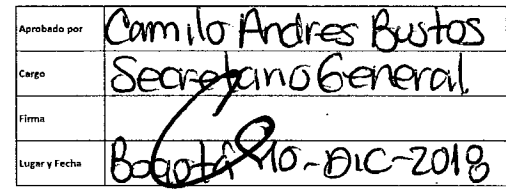 Aprobado por Camilo Andres Bustos
Cargo Secretario General
Firma
Lugar y Fecha Bogotá 10-DIC-2018